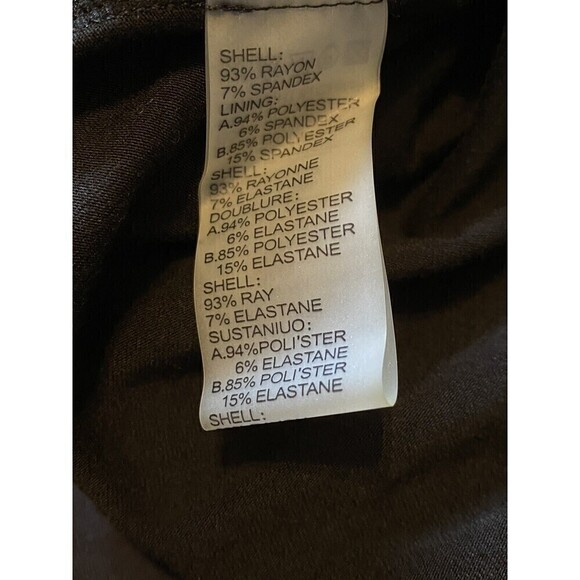 SHELL:
93% RAYON
7% SPANDEX
LINING:
A.94% POLYESTER
6% SPANDEX
B.85% POLYESTER
15% SPANDEX
SHELL:
93% RAYONNE
7% ELASTANE
DOUBLURE:
A.94% POLYESTER
6% ELASTANE
B.85% POLYESTER
15% ELASTANE
SHELL:
93% RAY
7% ELASTANE
SUSTANIUO:
A.94%POLI'STER
6% ELASTANE
B.85% POLI'STER
15% ELASTANE
SHELL: